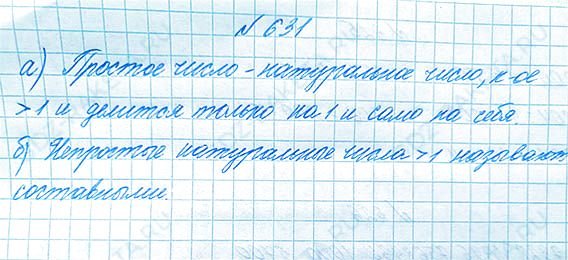 N 631
а) Простое число - натуральное число, к-ое
> 1 и делится только на 1 и само на себя.
б) Непростые натуральные числа > 1 называют
составными.